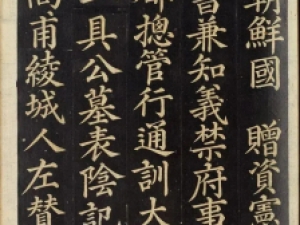 朝鮮國 贈資憲
書兼知義禁府事
都摠管行通訓大
具公墓表陰記
甫綾城人左贊